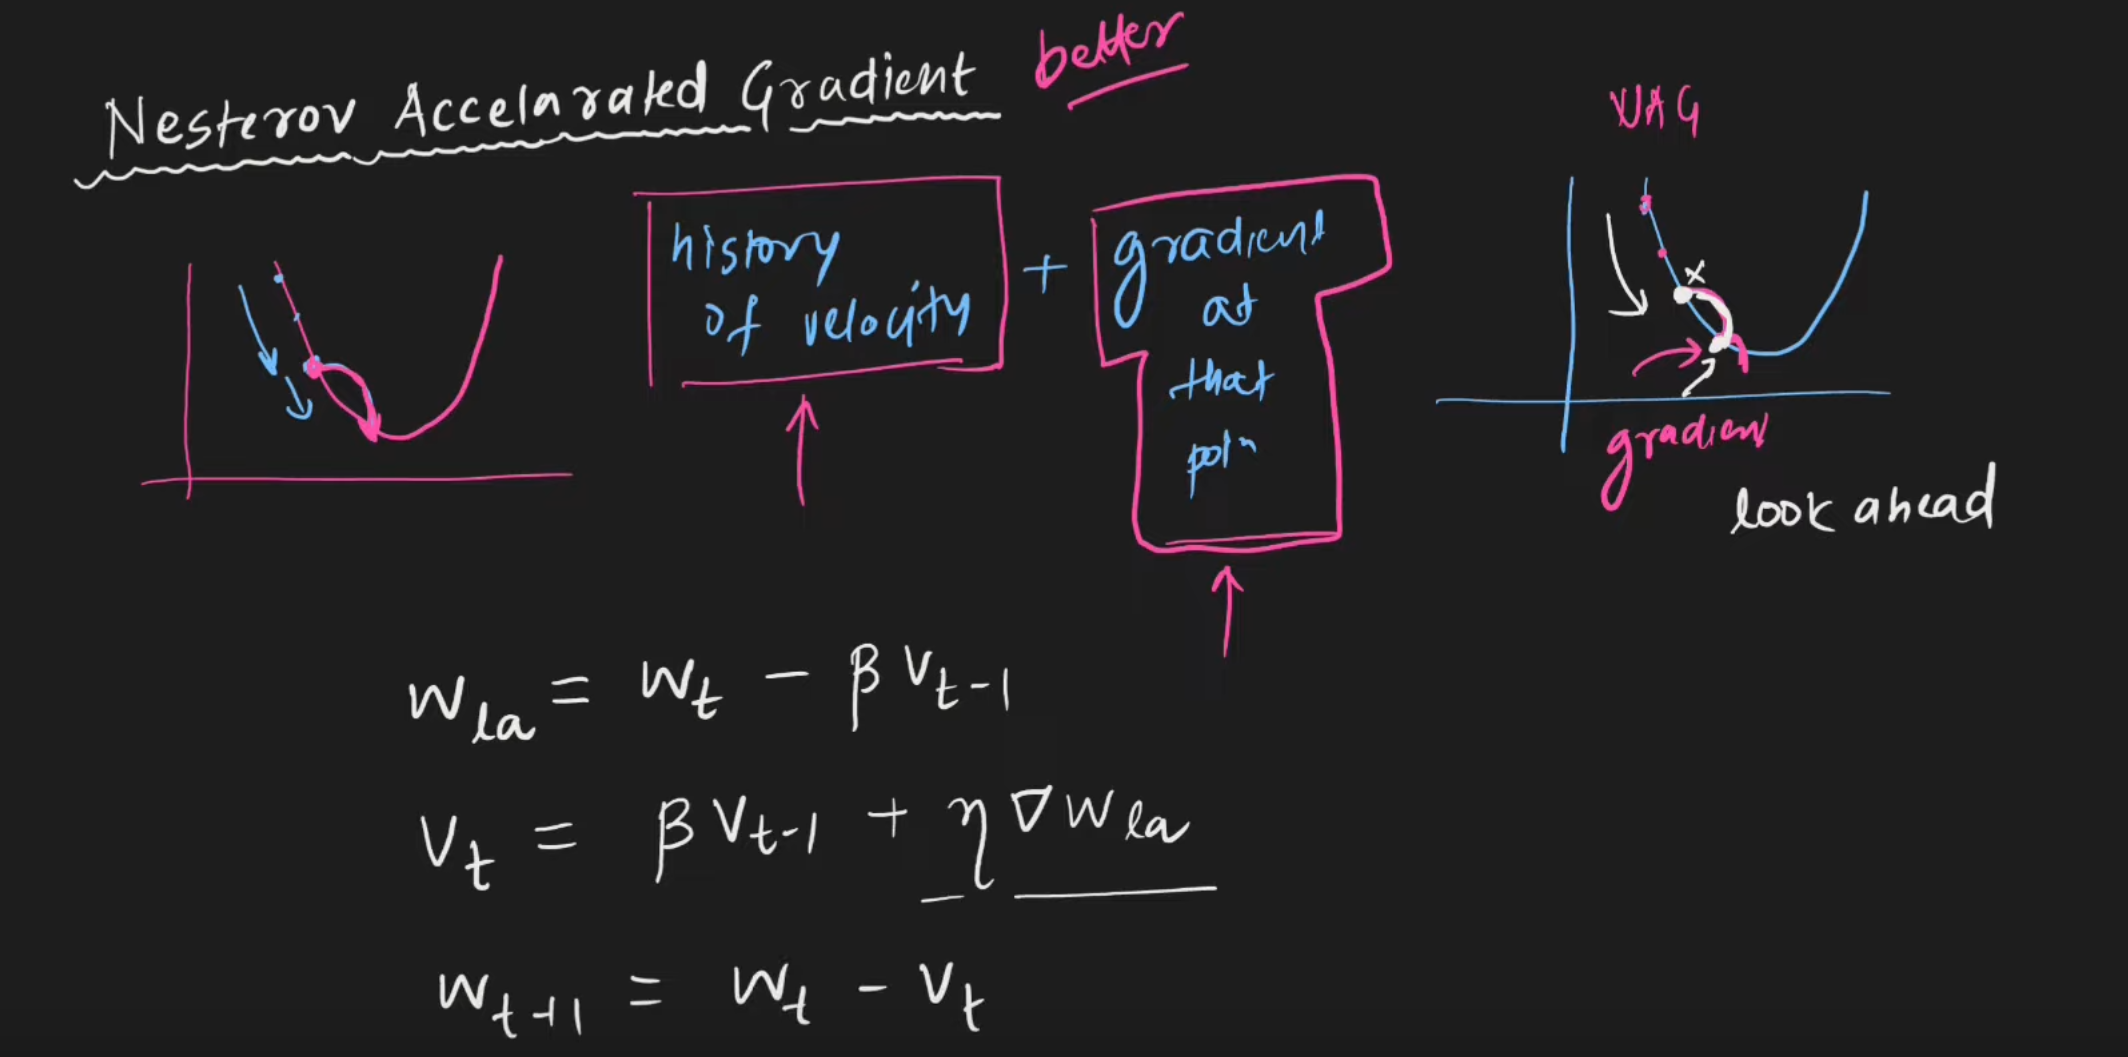 Nesterov Accelarated Gradient
better
history
of velocity
+
gradient
at
that
poin
NAG
x
gradient
look ahead
w_la = w_t - β v_t-1
v_t = β v_t-1 + η ∇ w_la
w_t+1 = w_t - v_t